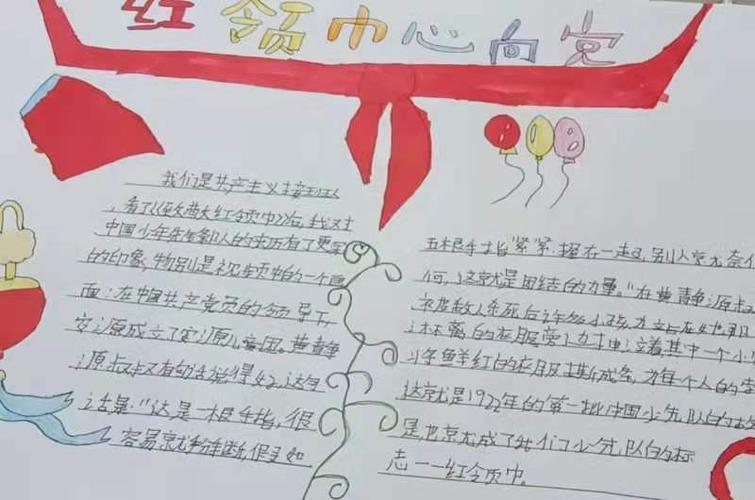 红领巾心向党
我们是共产主义接班人
，看了《 大红领巾》后，我对
中国少年先锋队的来历有了更深
的印象，特别是视频中的一个画
面：在中国共产党员的领导下，
安源成立了安源儿童团。黄静
源叔叔有句话说得好，这句
话是："这是一根手指，很
容易就 断，但是如
五根手指紧紧握在一起，别人就无奈
何，这就是团结的力量。"在黄静源叔
被敌人杀死后，许多小孩
的衣服旁， 着其中一个小
鲜红的衣服 成条，为每个人
这就是1922年的第一批中国少先队
是也就成了我们少先队的标
志——红领巾。